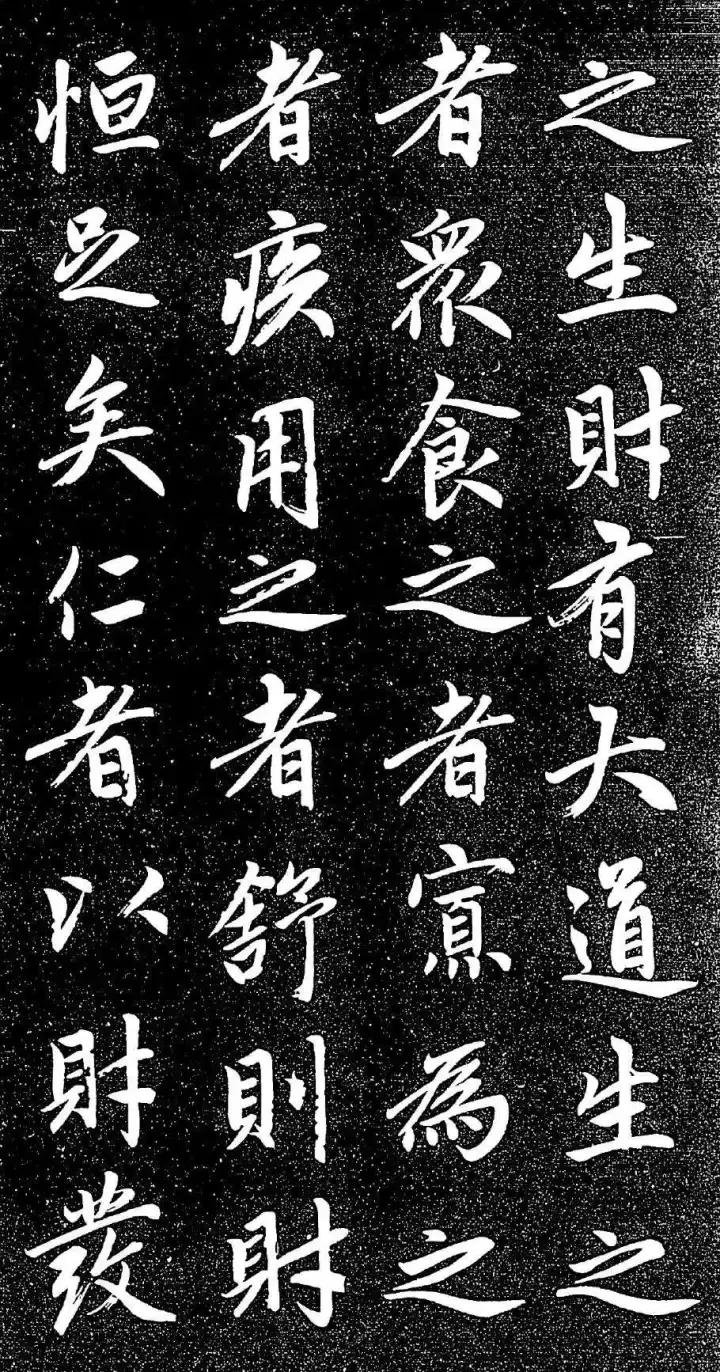 之生財有大道生之
者眾食之者寡為之
者疾用之者舒則財
恒足矣仁者以財發